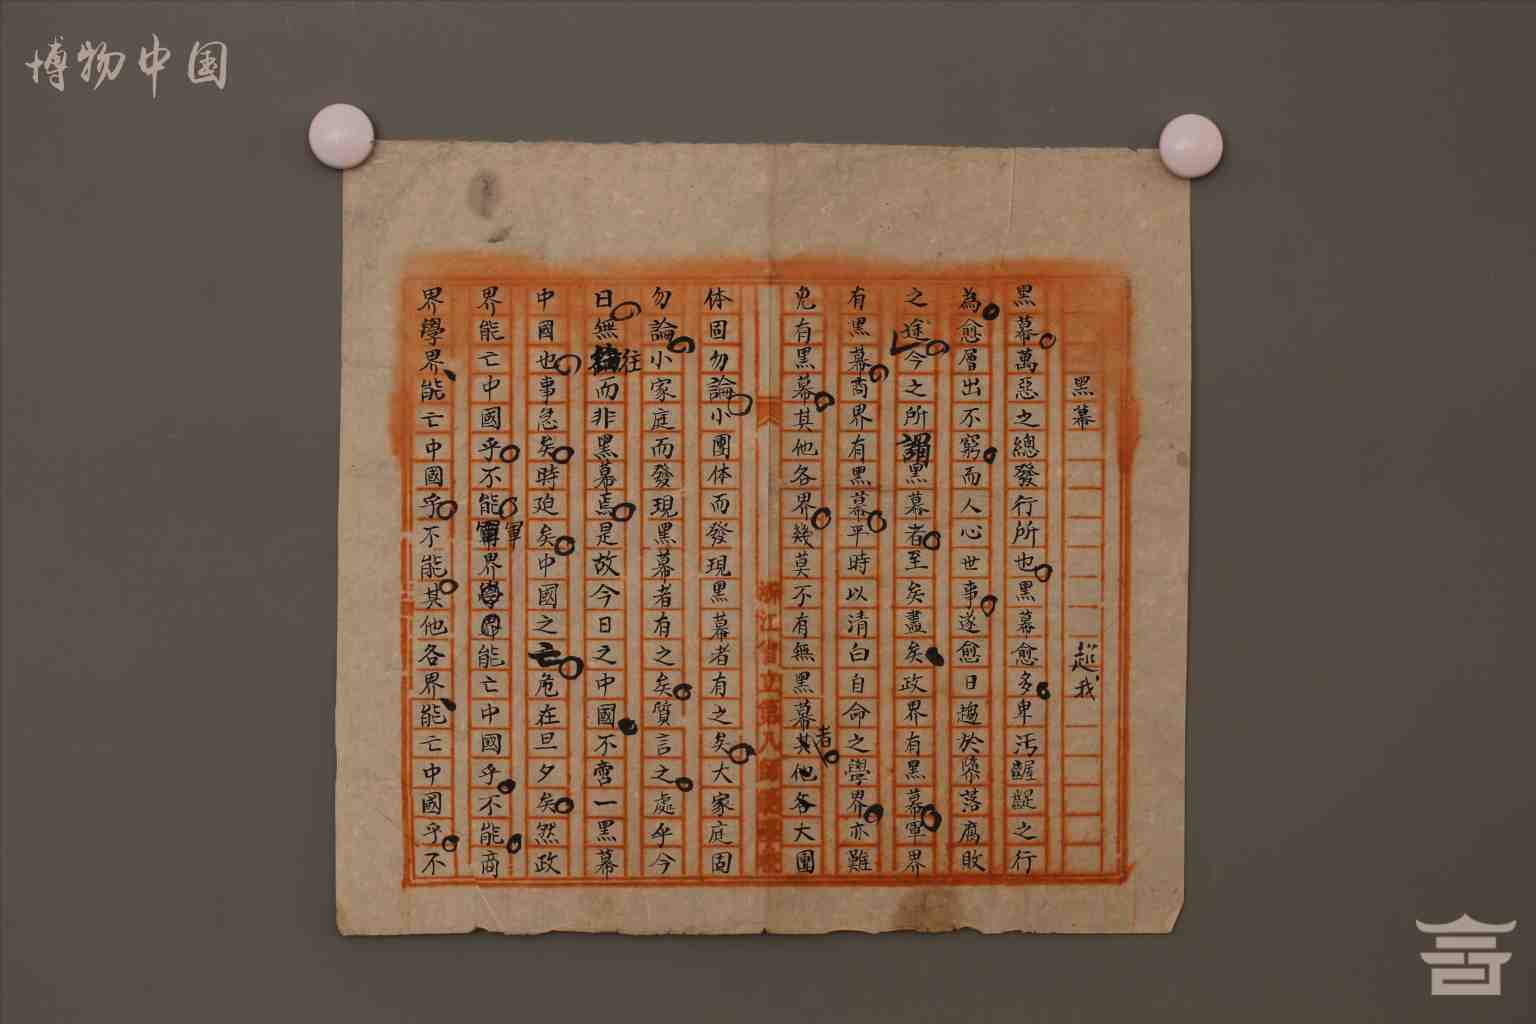 博物中国
黑幕
超我
黑幕萬惡之總發行所也黑幕愈多卑汚齷齪之行
為愈層出不窮而人心世事遂愈日趨於墮落腐敗
之途今之所謂黑幕者至矣盡矣政界有黑幕軍界
有黑幕商界有黑幕平時以清白自命之學界亦難
免有黑幕其他各界幾莫不有無黑幕者其他各大團
体固勿論小團体而發現黑幕者有之矣大家庭固
勿論小家庭而發現黑幕者有之矣質言之處乎今
日無往而非黑幕焉是故今日之中國不啻一黑幕
中國也事急矣時迫矣中國之亡危在旦夕矣然政
界能亡中國乎不能軍界能亡中國乎不能商
界學界能亡中國乎不能其他各界能亡中國乎不
浙江省立第八師範學校